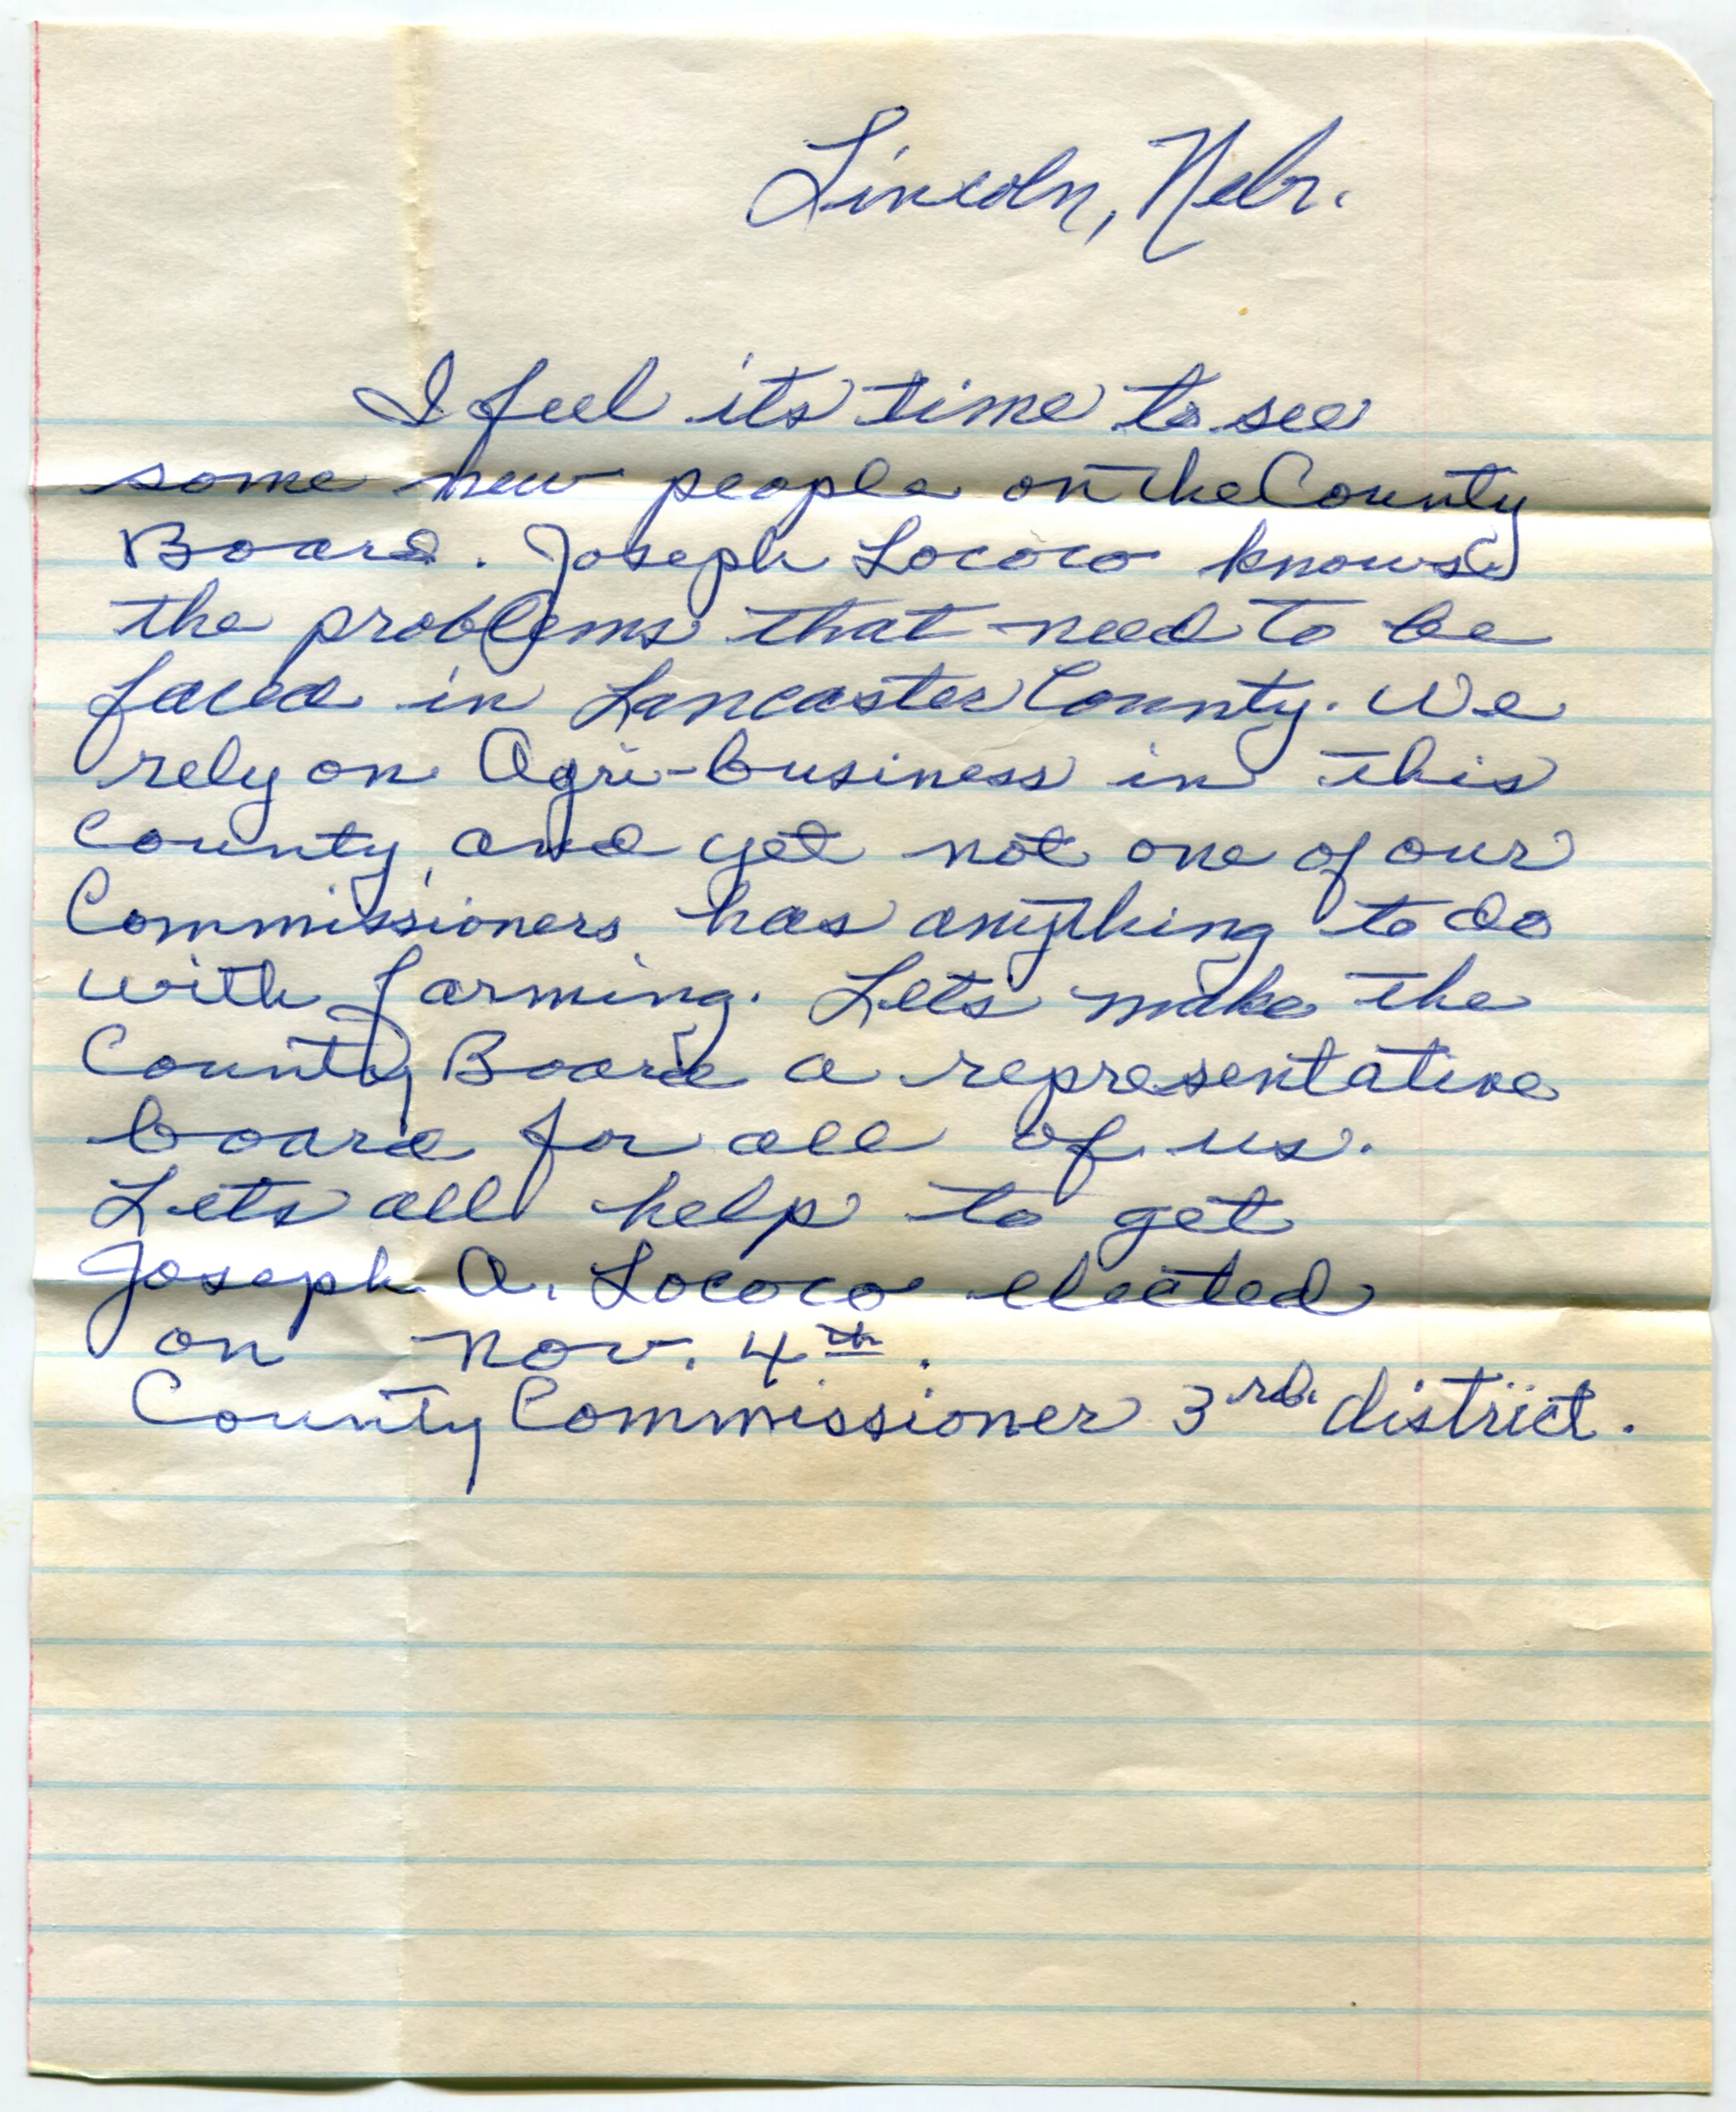 Lincoln, Nebr.
I feel its time to see
some new people on the County
Board. Joseph Lococo knows
the problems that need to be
faced in Lancaster County. We
rely on Agri-business in this
County, and yet not one of our
Commissioners has anything to do
with farming. Lets make the
County Board a representative
board for all of us.
Lets all help to get
Joseph A. Lococo elected
on Nov. 4th.
County Commissioner 3rd. district.